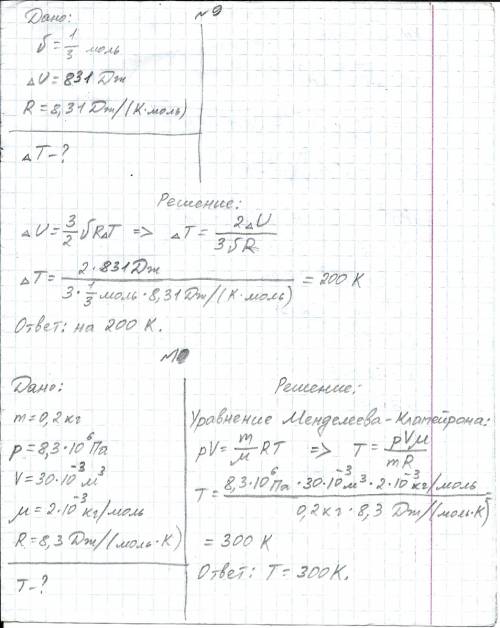 №9
Дано:
б = 1/3 моль
ΔU = 831 Дж
R = 8,31 Дж/(К·моль)
ΔT - ?
Решение:
ΔU = 3/2 бRΔT => ΔT = 2ΔU / 3бR
ΔT = 2·831 Дж / 3·1/3 моль·8,31 Дж/(К·моль) = 200 К
Ответ: на 200 К.
Дано:
m = 0,2 кг
p = 8,3·10⁶ Па
V = 30·10⁻³ м³
μ = 2·10⁻³ кг/моль
R = 8,3 Дж/(моль·К)
T - ?
Решение:
Уравнение Менделеева-Клапейрона:
pV = m/μ RT => T = pVμ / mR
T = 8,3·10⁶ Па·30·10⁻³ м³·2·10⁻³ кг/моль / 0,2 кг·8,3 Дж/(моль·К) =
= 300 К
Ответ: T = 300 К.